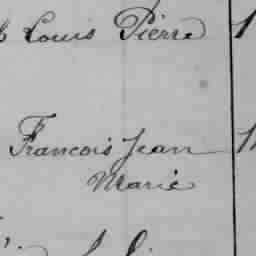 Louis Pierre
Francois Jean
Marie